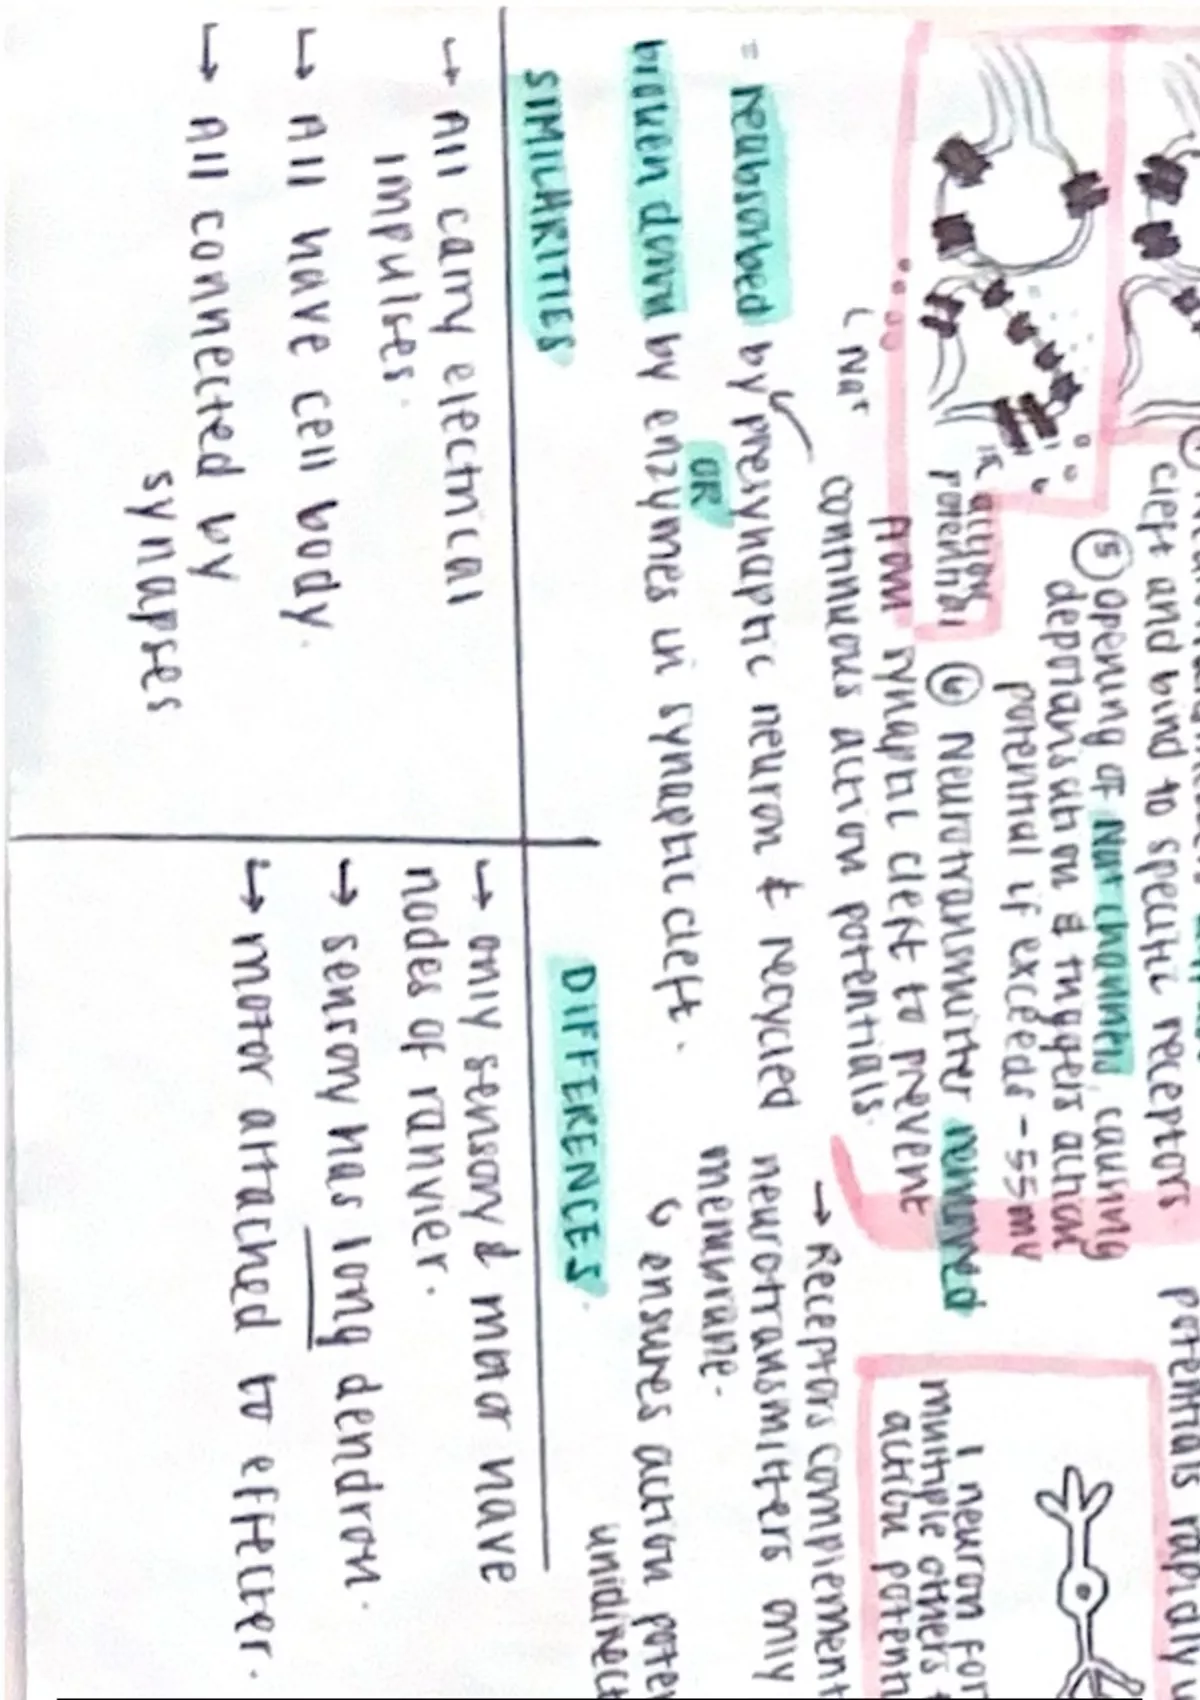 cleft and bind to specific receptors
⑤ Opening of Na+ channels, causing
depolarisation & triggers action
potential if exceeds -55mv
action
potential
⑥ Neurotransmitter removed
from synaptic cleft to prevent
continuous action potentials.
↳ Na+
= reabsorbed by presynaptic neuron & recycled
OR
broken down by enzymes in synaptic cleft.
potentials rapidly
1 neuron for
multiple others
action potent
→ Receptors complement
neurotransmitters only
membrane.
↳ ensures action poten
unidirect
SIMILARITIES
↳ All carry electrical
impulses.
↳ All have cell body.
↳ All connected by
synapses
DIFFERENCES.
↳ only sensory & motor have
nodes of ranvier.
↳ sensory has long dendron.
↳ motor attached to effector.